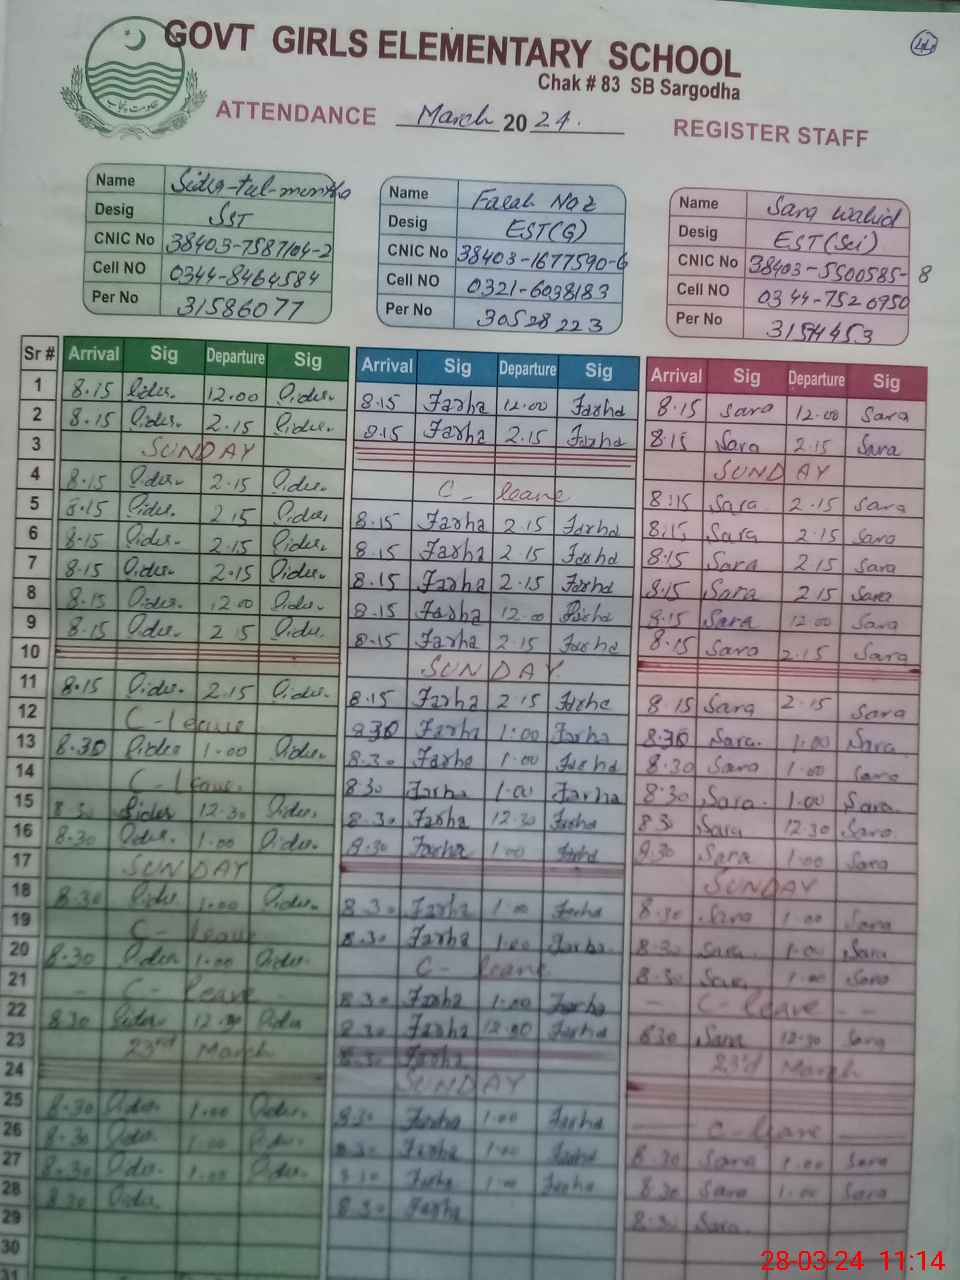 44
GOVT GIRLS ELEMENTARY SCHOOL
Chak # 83 SB Sargodha
حکومت پنجاب
ATTENDANCE March 2024. REGISTER STAFF
Name Sidra-tul-muntha
Desig SST
CNIC No 38403-7587104-2
Cell NO 0344-8464584
Per No 31586077
Name Farah Naz
Desig EST(G)
CNIC No 38403-1677590-6
Cell NO 0321-6038183
Per No 30528223
Name Sara Wahid
Desig EST(Sci)
CNIC No 38403-5500585-8
Cell NO 0344-7520950
Per No
Sr # Arrival Sig Departure Sig Arrival Sig Departure Sig Arrival Sig Departure Sig
1 8.15 Sidra. 12.00 Sidra. 8.15 Farha 12.00 Farha 8.15 Sara 12.00 Sara
2 8.15 Sidra. 2.15 Sidra. 8.15 Farha 2.15 Farha 8.15 Sara 2.15 Sara
3 SUNDAY SUNDAY
4 8.15 Sidra. 2.15 Sidra. C- leave 8:15 Sara 2.15 Sara
5 8.15 Sidra. 2.15 Sidra. 8.15 Farha 2.15 Farha 8:15 Sara 2.15 Sara
6 8.15 Sidra. 2.15 Sidra. 8.15 Farha 2.15 Farha 8:15 Sara 2.15 Sara
7 8.15 Sidra. 2.15 Sidra. 8.15 Farha 2.15 Farha 8.15 Sara 2.15 Sara
8 8.15 Sidra. 12.00 Sidra. 8.15 Farha 12.00 Farha 8.15 Sara 12.00 Sara
9 8.15 Sidra. 2.15 Sidra. 8.15 Farha 2.15 Farha 8.15 Sara 2.15 Sara
10 SUNDAY
11 8.15 Sidra. 2.15 Sidra. 8.15 Farha 2.15 Farha 8.15 Sara 2.15 Sara
12 C-leave 8.30 Farha 1:00 Farha 8.30 Sara. 1.00 Sara
13 8.30 Sidra 1.00 Sidra. 8.30 Farha 1.00 Farha 8.30 Sara 1.00 Sara
14 C-Leave. 8.30 Farha 1.00 Farha 8.30 Sara. 1.00 Sara.
15 8.30 Sidra 12.30 Sidra. 8.30 Farha 12.30 Farha 8.30 Sara 12.30 Sara
16 8.30 Sidra. 1.00 Sidra. 8.30 Farha 1.00 Farha 8.30 Sara 1.00 Sara
17 SUNDAY SUNDAY
18 8.30 Sidra. 1.00 Sidra. 8.30 Farha 1.00 Farha 8.30 Sara 1.00 Sara
19 C- leave 8.30 Farha 1.00 Farha 8.30 Sara 1.00 Sara
20 8.30 Sidra 1.00 Sidra. C- leave 8.30 Sara 1.00 Sara
21 C- leave 8.30 Farha 1.00 Farha C-leave
22 8.30 Sidra 12.30 Sidra 8.30 Farha Farha 8.30 Sara 12.30 Sara
23 23rd March 8.30 Farha 23rd March
24 SUNDAY
25 8.30 Sidra. 1.00 Sidra. 8.30 Farha 1.00 Farha C-leave
26 8.30 Sidra. 1.00 Sidra. 8.30 Farha 1.00 Farha 8.30 Sara 1.00 Sara
27 8.30 Sidra. 1.00 Sidra. 8.30 Farha 1.00 Farha 8.30 Sara 1.00 Sara
28 8.30 Sidra. 8.30 Farha 8.30 Sara.
29
30
31
28-03-24 11:14